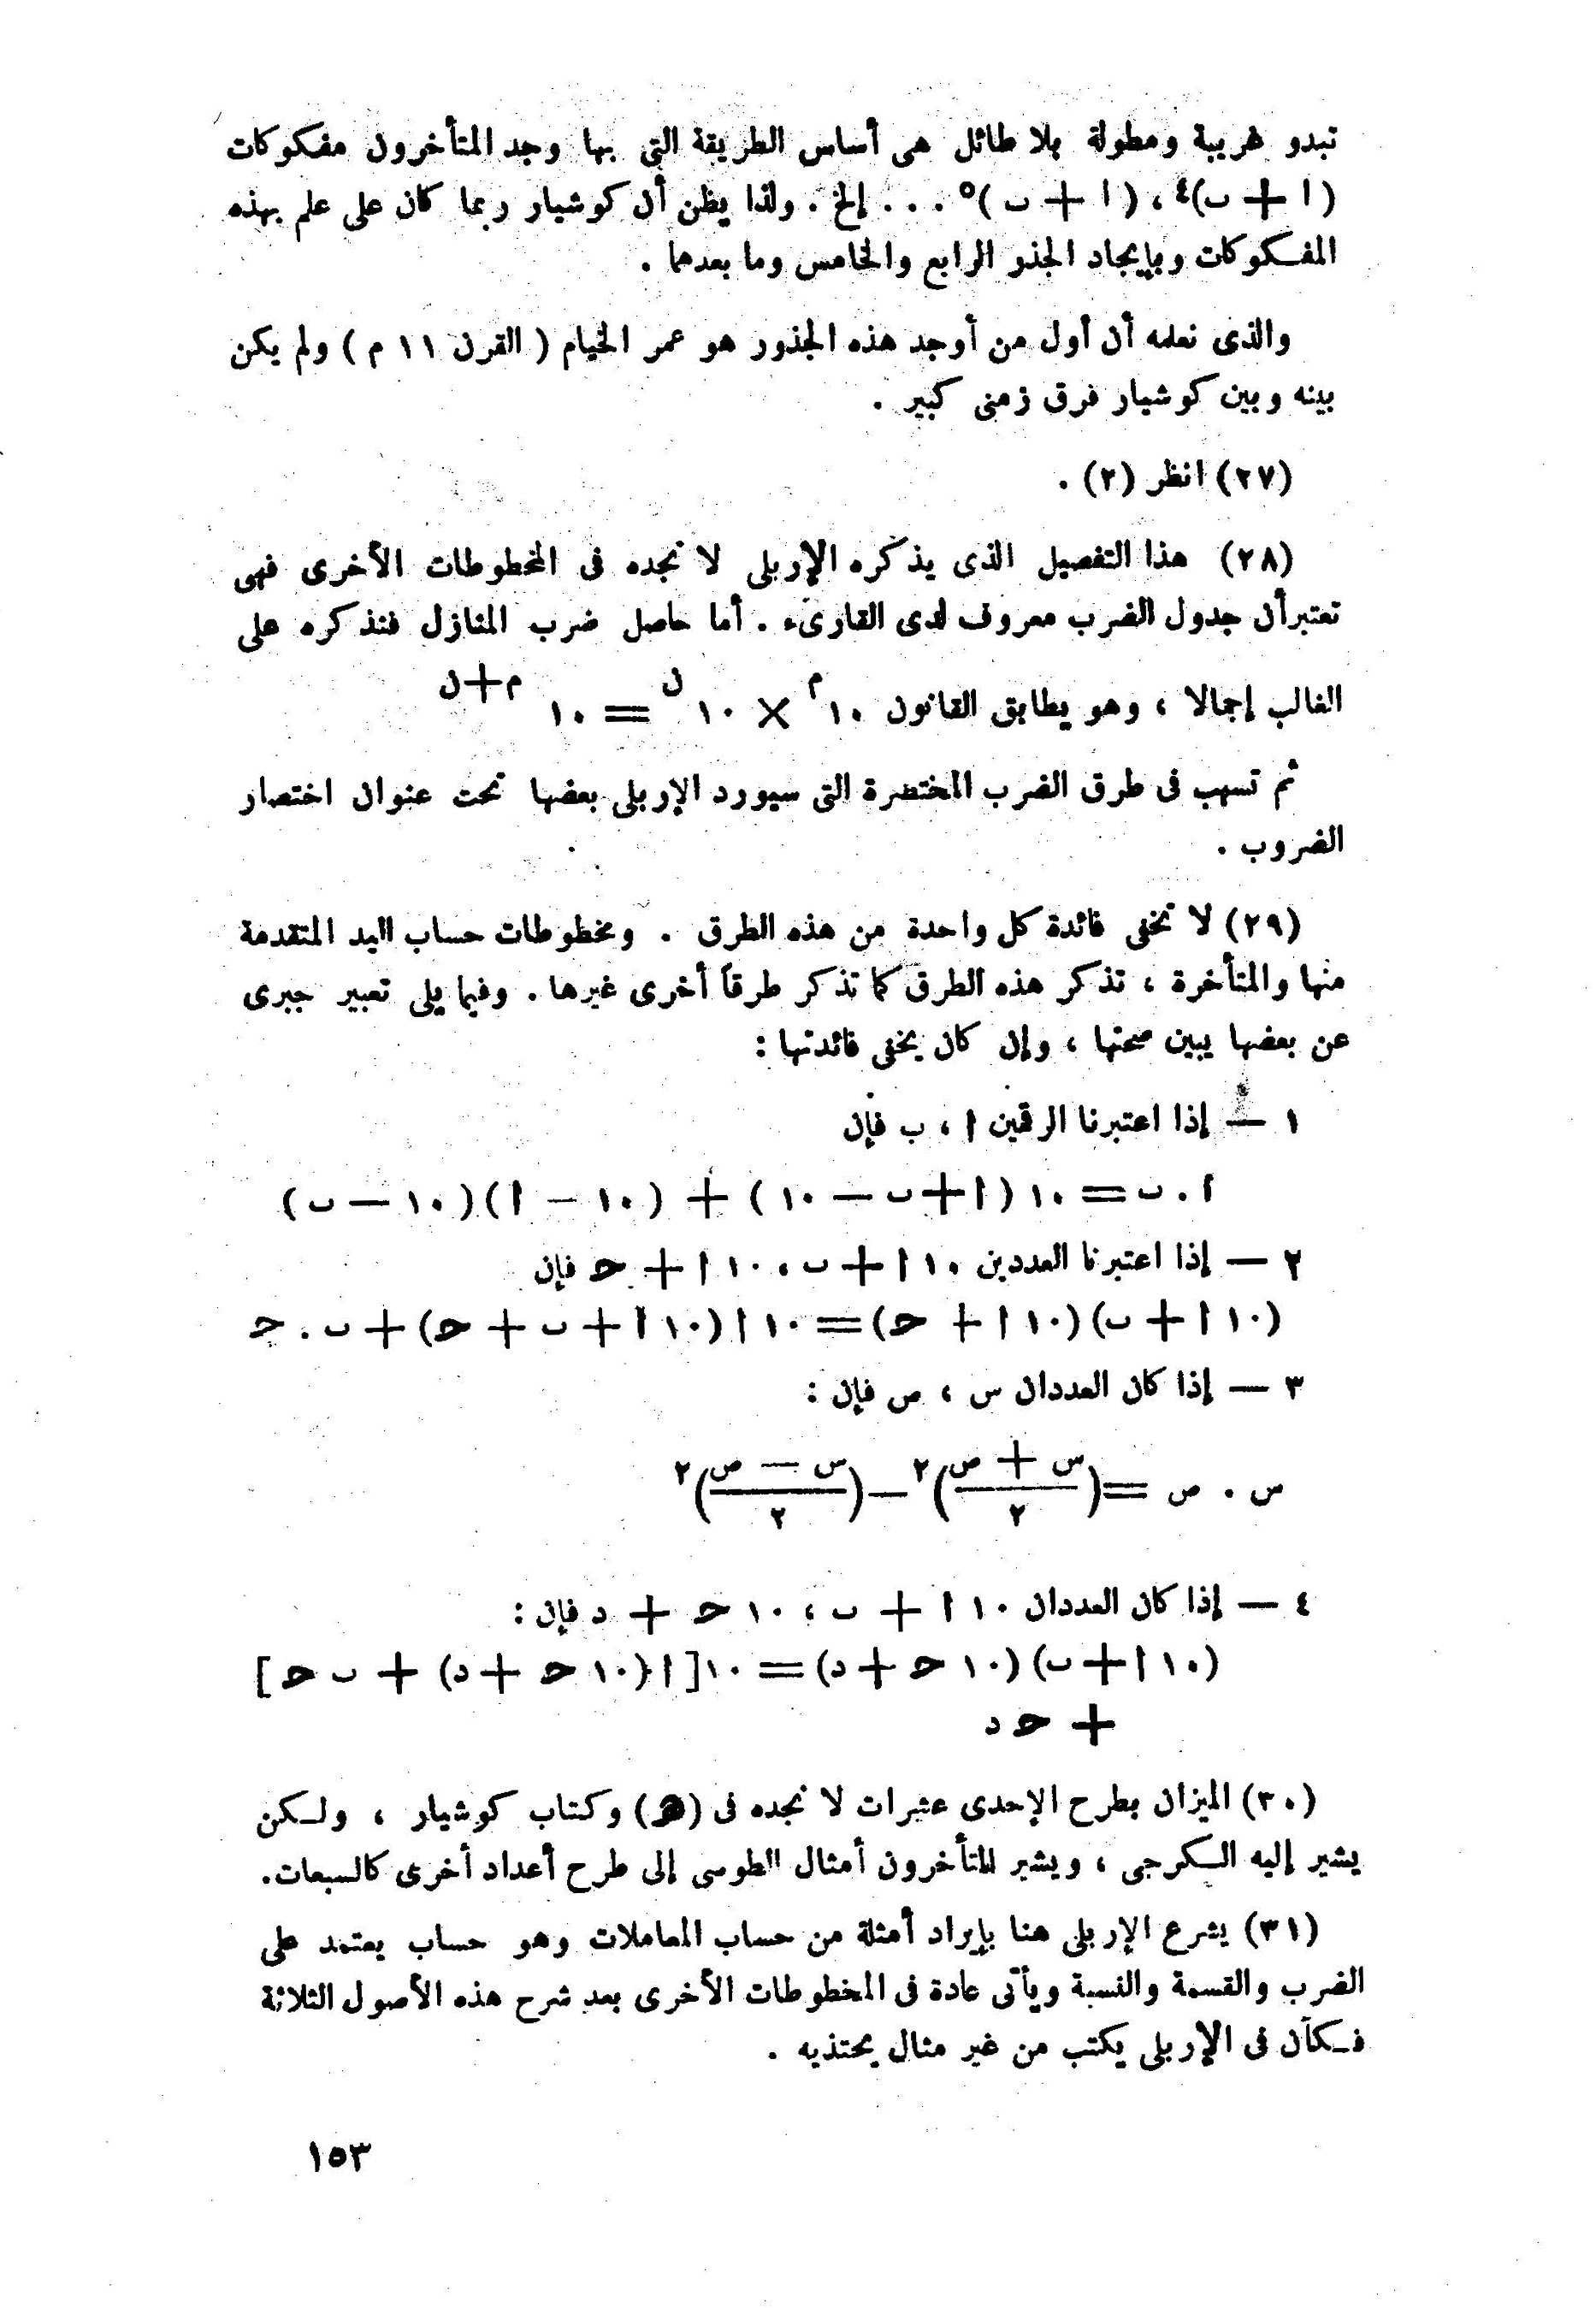 تبدو غريبة ومطولة بلا طائل هى أساس الطريقة التى بها وجد المتأخرون مفكوكات
(ا + ب)٤ ، (ا + ب)٥ . . . إلخ . ولذا يظن أن كوشيار ربما كان على علم بهذه
المفـكوكات وبإيجاد الجذو الرابع والخامس وما بعدهما .
والذى نعلمه أن أول من أوجد هذه الجذور هو عمر الخيام ( القرن ١١ م ) ولم يكن
بينه وبين كوشيار فرق زمنى كبير .
(٢٧) انظر (٢) .
(٢٨) هذا التفصيل الذى يذكره الإربلى لا نجده فى المخطوطات الأخرى فهى
تعتبرأن جدول الضرب معروف لدى القارىء . أما حاصل ضرب المنازل فنذكره على
الغالب إجمالا ، وهو يطابق القانون ١٠م × ١٠ن = ١٠م+ن
ثم تسهب فى طرق الضرب المختصرة التى سيورد الإربلى بعضها تحت عنوان اختصار
الضروب .
(٢٩) لا تخفى فائدة كل واحدة من هذه الطرق . ومخطوطات حساب اليد المتقدمة
منها والمتأخرة ، تذكر هذه الطرق كما تذكر طرقاً أخرى غيرها . وفيما يلى تعبير جبرى
عن بعضها يبين صحتها ، وإن كان يخفى فائدتها :
١ — إذا اعتبرنا الرقمين ا ، ب فإن
ا . ب = ١٠ (ا + ب — ١٠) + (١٠ — ا)(١٠ — ب)
٢ — إذا اعتبرنا العددين ١٠ ا + ب ، ١٠ ا + حـ فإن
(١٠ ا + ب)(١٠ ا + حـ) = ١٠ ا (١٠ ا + ب + حـ) + ب . جـ
٣ — إذا كان العددان س ، ص فإن :
س . ص = (س + ص / ٢)٢ — (س — ص / ٢)٢
٤ — إذا كان العددان ١٠ ا + ب ، ١٠ حـ + د فإن :
(١٠ ا + ب)(١٠ حـ + د) = ١٠ [ا (١٠ حـ + د) + ب حـ]
+ حـ د
(٣٠) الميزان بطرح الإحدى عشرات لا نجده فى (هـ) وكتاب كوشيار ، ولـكن
يشير إليه الـكرجى ، ويشير المتأخرون أمثال الطوسى إلى طرح أعداد أخرى كالسبعات.
(٣١) يشرع الإربلى هنا بإيراد أمثلة من حساب المعاملات وهو حساب يعتمد على
الضرب والقسمة والنسبة ويأتى عادة فى المخطوطات الأخرى بعد شرح هذه الأصول الثلاثة
فـكآن فى الإربلى يكتب من غير مثال يحتذيه .
١٥٣